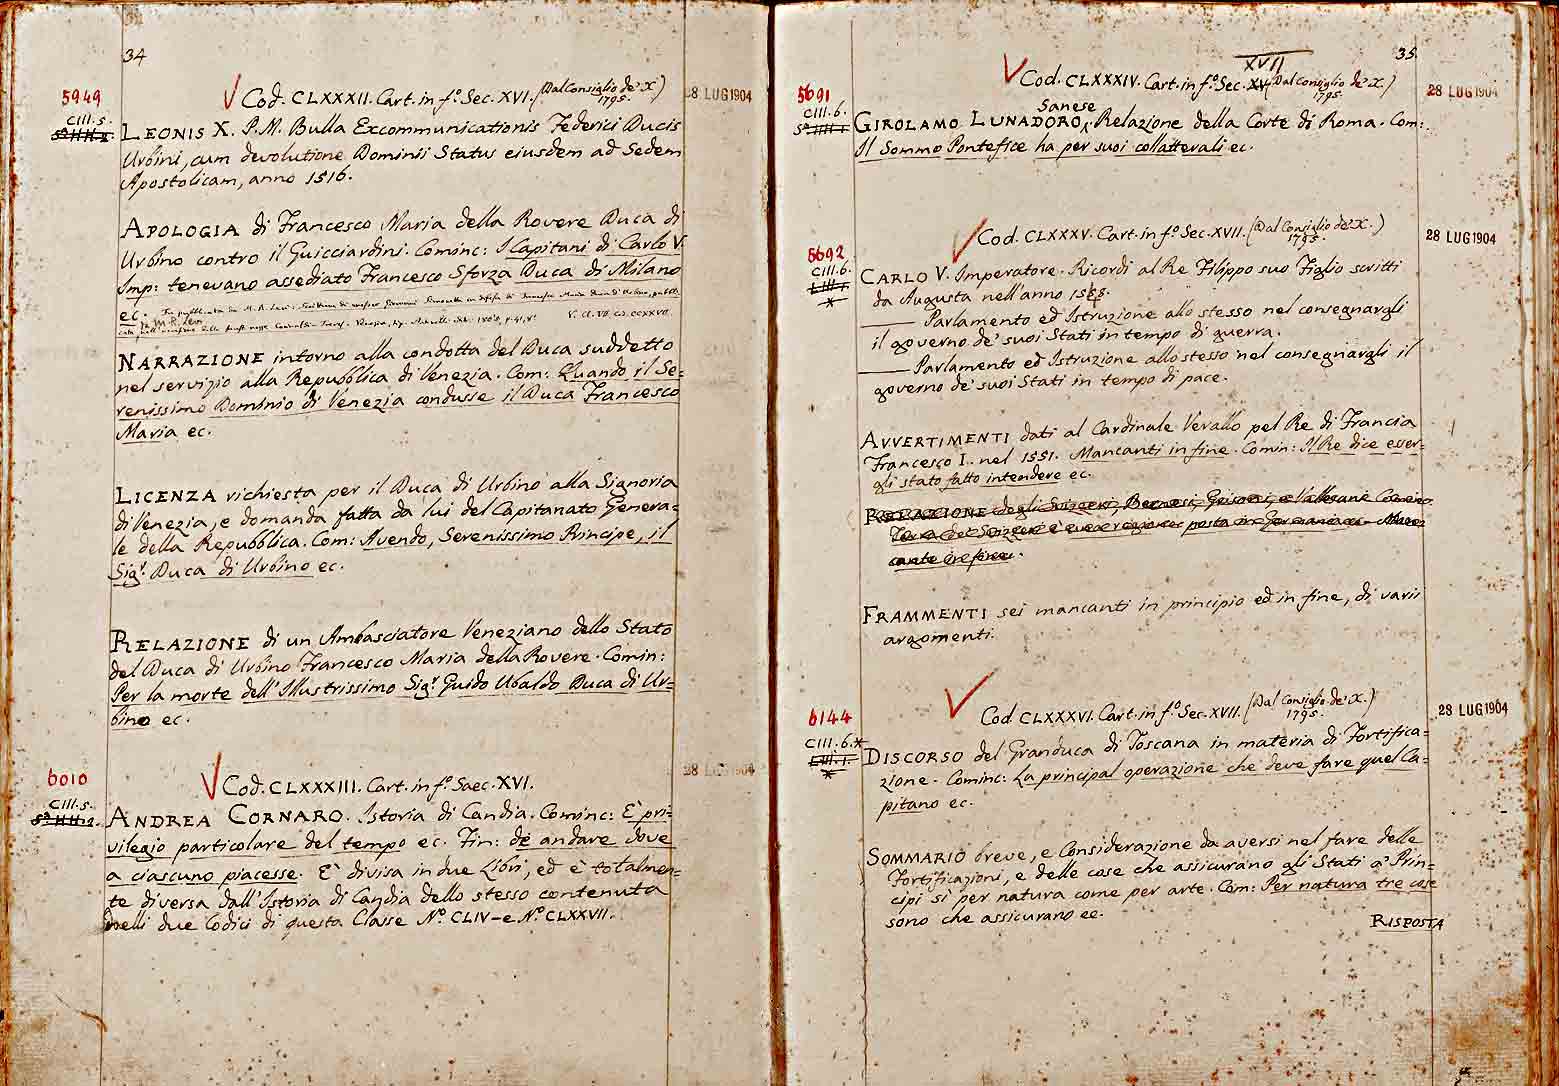 34
5949
CIII.5.
√ Cod. CLXXXII. Cart. in f.º Sec. XVI. (Dal Consiglio de' X.)
1795.
28 LUG 1904
LEONIS X. P. M. Bulla Excommunicationis Federici Ducis
Urbini, cum devolutione Dominii Status eiusdem ad Sedem
Apostolicam, anno 1516.
APOLOGIA di Francesco Maria della Rovere Duca di
Urbino contro il Guicciardini. Cominc: I Capitani di Carlo V.
Imp: tenevano assediato Francesco Sforza Duca di Milano
ec.
NARRAZIONE intorno alla condotta del Duca suddetto
nel servizio alla Repubblica di Venezia. Com: Quando il Se=
renissimo Dominio di Venezia condusse il Duca Francesco
Maria ec.
LICENZA richiesta per il Duca di Urbino alla Signoria
di Venezia, e domanda fatta da lui del Capitanato Genera-
le della Repubblica. Com: Avendo, Serenissimo Principe, il
Sigʳ. Duca di Urbino ec.
RELAZIONE di un Ambasciatore Veneziano dello Stato
del Duca di Urbino Francesco Maria della Rovere. Comin:
Per la morte dell'Illustrissimo Sigʳ Guido Ubaldo Duca di Ur=
bino ec.
6010
CIII.5.
√ Cod. CLXXXIII. Cart. in fº. Saec. XVI.
28 LUG 1904
ANDREA CORNARO. Istoria di Candia. Cominc: È pri-
vilegio particolare del tempo ec. Fin: de andare dove
a ciascuno piacesse. È divisa in due Libri, ed è totalmen-
te diversa dall'Istoria di Candia dello stesso contenuta
nelli due Codici di questa Classe Nº. CLIV- e Nº. CLXXVII.
35.
XVII
5691
CIII.6.
√ Cod. CLXXXIV. Cart. in f.º Sec. XV (Dal Consiglio de' X.)
1795.
28 LUG 1904
Sanese
GIROLAMO LUNADORO. Relazione della Corte di Roma. Com:
Il Sommo Pontefice ha per suoi collatterali ec.
5692
CIII.6.
*
√ Cod. CLXXXV. Cart. in f.º Sec. XVII. (Dal Consiglio de' X.)
1795.
28 LUG 1904
CARLO V. Imperatore. Ricordi al Re Filippo suo Figlio scritti
da Augusta nell'anno
Parlamento ed Istruzione allo stesso nel consegnargli
il governo de' suoi Stati in tempo di guerra.
Parlamento ed Istruzione allo stesso nel consegnargli il
governo de' suoi Stati in tempo di pace.
AVVERTIMENTI dati al Cardinale Verallo pel Re di Francia
Francesco I. nel 1551. Mancanti in fine. Comin: Il Re dice esser-
gli stato fatto intendere ec.
RELAZIONE degli Svizzeri, Bernesi, Grisoni, e Vallesani
FRAMMENTI sei mancanti in principio ed in fine, di varii
argomenti.
6144
CIII.6.*
*
√ Cod. CLXXXVI. Cart. in f.º Sec. XVII. (Dal Consiglio de' X.)
1795.
28 LUG 1904
DISCORSO del Granduca di Toscana in materia di Fortifica=
zione. Cominc: La principal operazione che deve fare quel Ca=
pitano ec.
SOMMARIO breve, e Considerazione da aversi nel fare delle
Fortificazioni, e delle cose che assicurano gli Stati a' Prin=
cipi sì per natura come per arte. Com: Per natura tre cose
sono che assicurano ec.
RISPOSTA